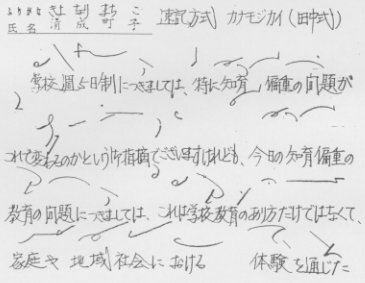 よりきよ きよ なり まち こ
氏名 清成町子 速記方式 カナモジカイ(田中式)
学校週5日制につきましては、特に知育偏重の問題が
これで変わるのかというご指摘でございますけれども、今日の知育偏重の
教育の問題につきましては、これは学校教育のあり方だけではなくて、
家庭や地域社会における 体験を通じた